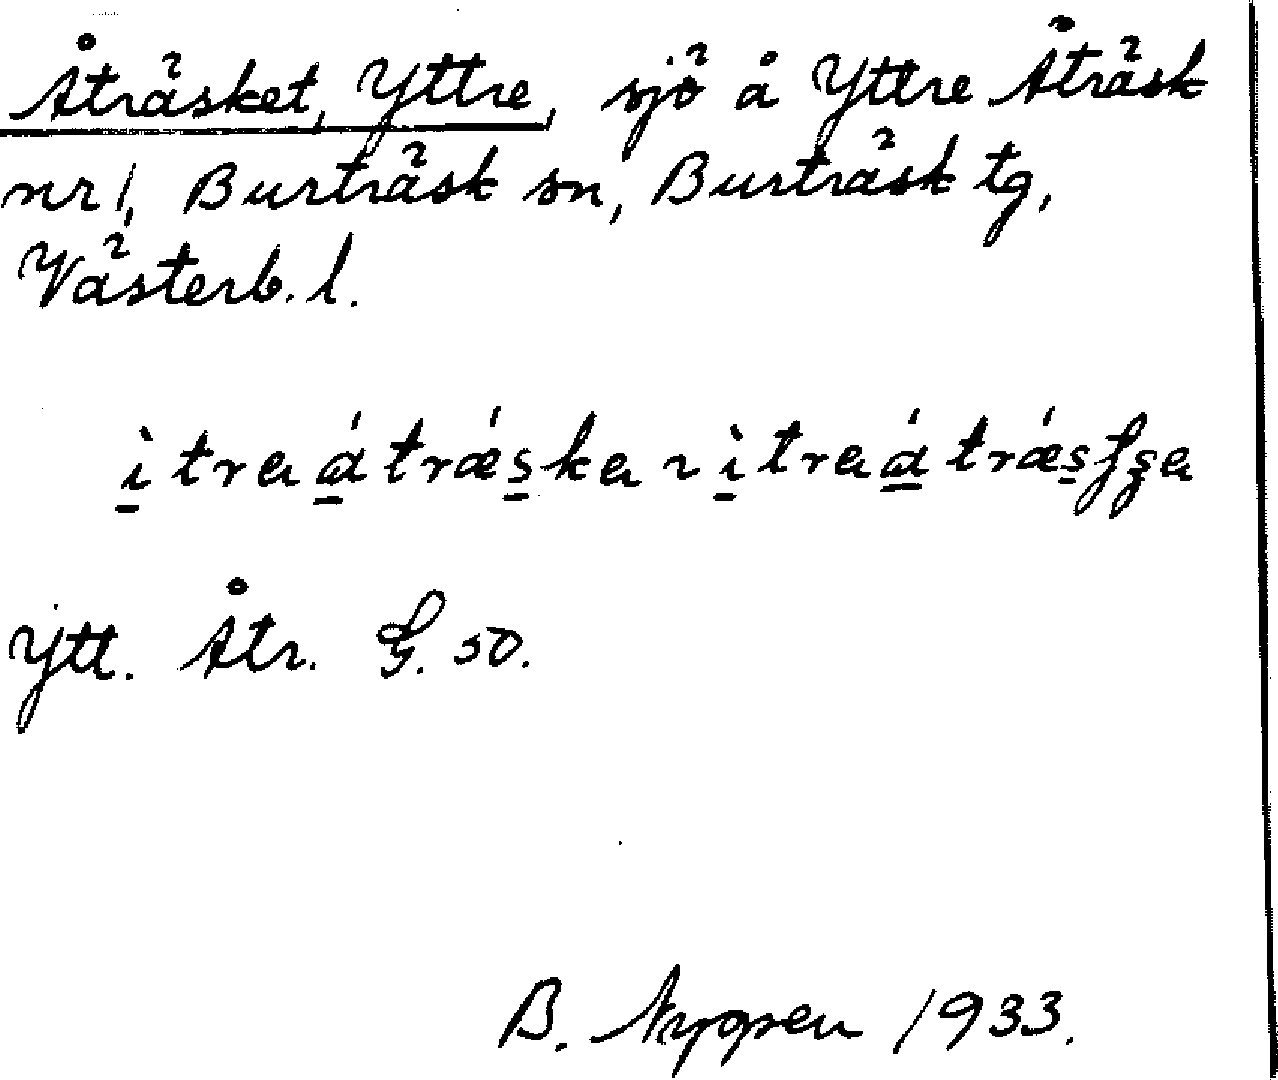 Åträsket, Yttre, sjö å Yttre Åträsk
nr 1, Burträsk sn, Burträsk tg,
Västerb. l.
ì tra á trǽska ꝛ ì tra á trǽsʃʒa
Ytt. Åtr. G. 50.
B. Nygren 1933.